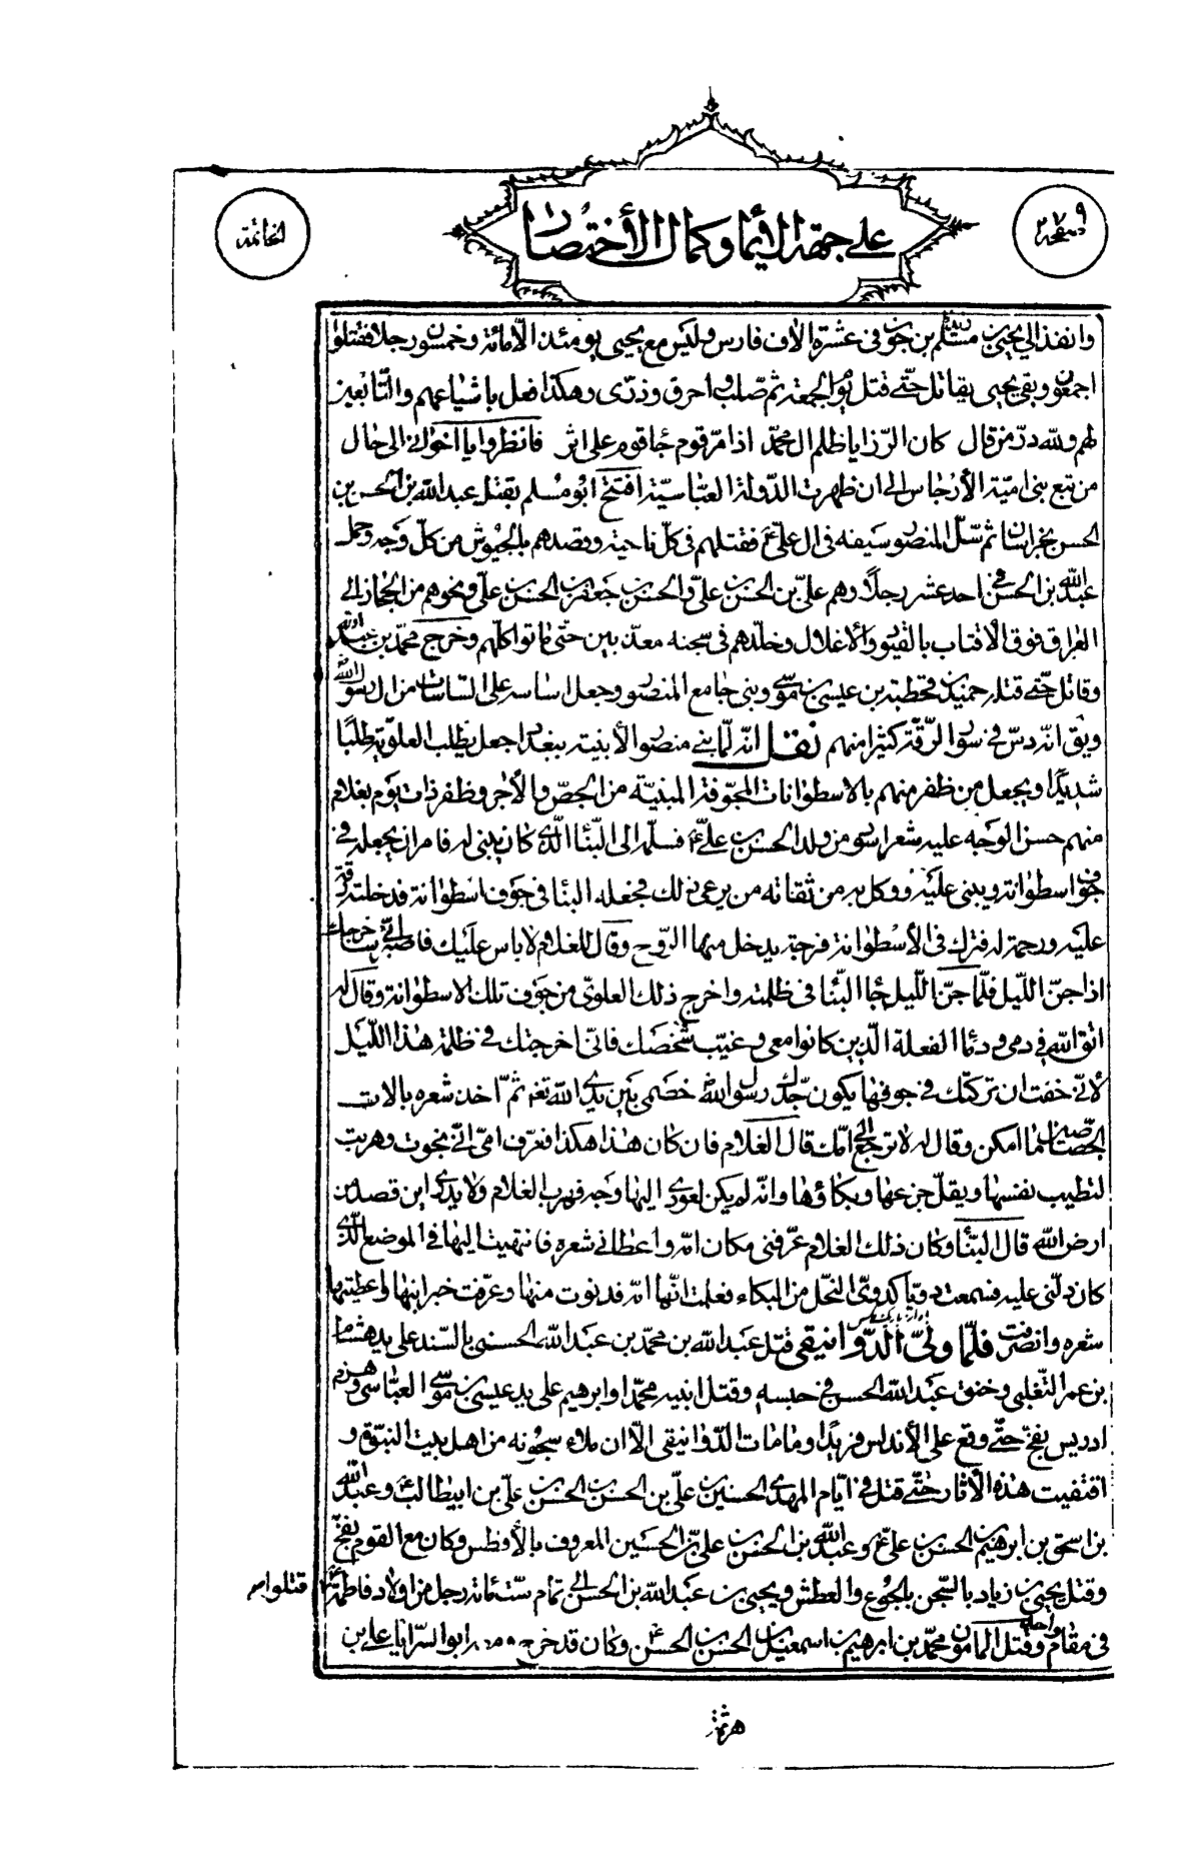 صفحه ٢٧٩
على جهة الأيما وكمال الأختصار
الخاتمة
وانفذ الى يحيى بن مسلم بن جون فى عشرة الاف فارس وليس مع يحيى يومئذ الّا مائة وخمسون رجلا فقتلوا
اجمعون وبقى يحيى يقاتل حتّى قتل يوم الجمعة ثم صلب واحرق وذرّى وهكذا فعل باشياعهم والتّابعين
لهم وللّه درّ من قال كان الرّزايا ظلم ال محمّد اذا مرّ قوم جا قوم على اثر فانظروا يا اخوانى الى حال
من تبع بنى اميّة الأرجاس الى ان ظهرت الدّولة العبّاسيّة افتتح ابو مسلم بقتل عبد اللّه بن الحسن بن
الحسن بخراسان ثم سلّ المنصور سيفه فى ال علىّ ع فقتلهم فى كلّ ناحية وقصدهم بالجيوش من كلّ وجه وحمل
عبد اللّه بن الحسن فى احد عشر رجلًا وهم علىّ بن الحسن بن علىّ والحسن بن جعفر بن الحسن بن علىّ ونحوهم من الحجاز الى
العراق فوق الاقتاب بالقيود والأغلال وخلّدهم فى سجنه معذّبين حتّى ماتوا كلّهم وخرج محمّد بن عبد اللّه
وقاتل حتّى قتله حميد بن قحطبة بن عيسى بن موسى وبنى جامع المنصور وجعل اساسه على السّادات من ال رسول اللّه
ويق انّه دسّ فى سور الرّقة كثيرا منهم نقل انّه لمّا بنى منصور الأبنية ببغداد جعل يطلب العلوية طلبًا
شديدًا ويجعل من ظفر منهم بالاسطوانات المجوّفة المبنيّة من الجصّ والأجر وظفر ذات يوم بغلام
منهم حسن الوجه عليه شعر اسود من ولد الحسن بن علىّ ع فسلّمه الى البنّا الّذى كان يبنى له فامر ان يجعله فى
جوف اسطوانة ويبنى عليه ووكل به من ثقاته من يرعى ذلك فجعله البنّا فى جوف اسطوانة فدخلته رقة
عليه ورحمة له فترك فى الأسطوانة فرجة يدخل منها الرّوح وقال للغلام لا باس عليك فاصبر فانّى ساخرجك
اذا جنّ اللّيل فلمّا جنّ اللّيل جا البنّا فى ظلمته واخرج ذلك العلوىّ من جوف تلك الاسطوانة وقال له
اتق اللّه فى دمى ودما الفعلة الّذين كانوا معى وغيّب شخصك فانّى اخرجتك فى ظلمة هذا اللّيل
لأنّى خفت ان تركتك فى جوفها يكون جدّك رسول اللّه ص خصمى بين يدى اللّه تعم ثمّ اخذ شعره بالات
الجصّاصين كما امكن وقال له لا ترجع الى امّك قال الغلام فان كان هذا هكذا فعرّف امّى انّى نجوت وهربت
لتطيب نفسها ويقلّ جزعها وبكاؤها وانّه لم يكن لعودى اليها وجه فهرب الغلام ولا يدرى اين قصد من
ارض اللّه قال البنّا وكان ذلك الغلام عرّفنى مكان امّه واعطانى شعره فانتهيت اليها فى الموضع الّذى
كان دلّنى عليه فسمعت دويّا كدوىّ النحل من البكاء فعلمت انّها امّه فدنوت منها وعرّفت خبر ابنها واعطيتها
شعره وانصرفت فلمّا ولىّ الدّوانيقى قتل عبد اللّه بن محمّد بن عبد اللّه الحسنى بالسّند على يد هشام
بن عمر التّغلبى وخنق عبد اللّه الحسن فى حبسه وقتل ابنيه محمّدا وابرهيم على يد عيسى بن موسى العبّاسى وهزم
ادريس بفخّ حتّى وقع على الأندلس فريدًا وما مات الدّوانيقى الّا ان ملاء سجونه من اهل بيت النبوّة و
اقتفيت هذه الأثار حتّى قتل فى ايّام المهدى الحسين بن علىّ بن الحسن بن الحسن بن الحسن بن علىّ بن ابيطالب ع وعبد اللّه
بن اسحق بن ابرهيم بن الحسن بن علىّ ع وعبد اللّه بن الحسن بن علىّ بن الحسين المعروف بالأفطس وكان مع القوم بفخّ
وقتل يحيى بن زياد بالسّجن بالجوع والعطش ويحيى بن عبد اللّه بن الحسن الى تمام ستّ مائة رجل من اولاد فاطمة ع قتلوا
فى مقام واحد وقتل المامون محمّد بن ابرهيم بن اسمعيل بن الحسن بن الحسن ع وكان قد خرج ابو السّرايا على بن
هرثمة